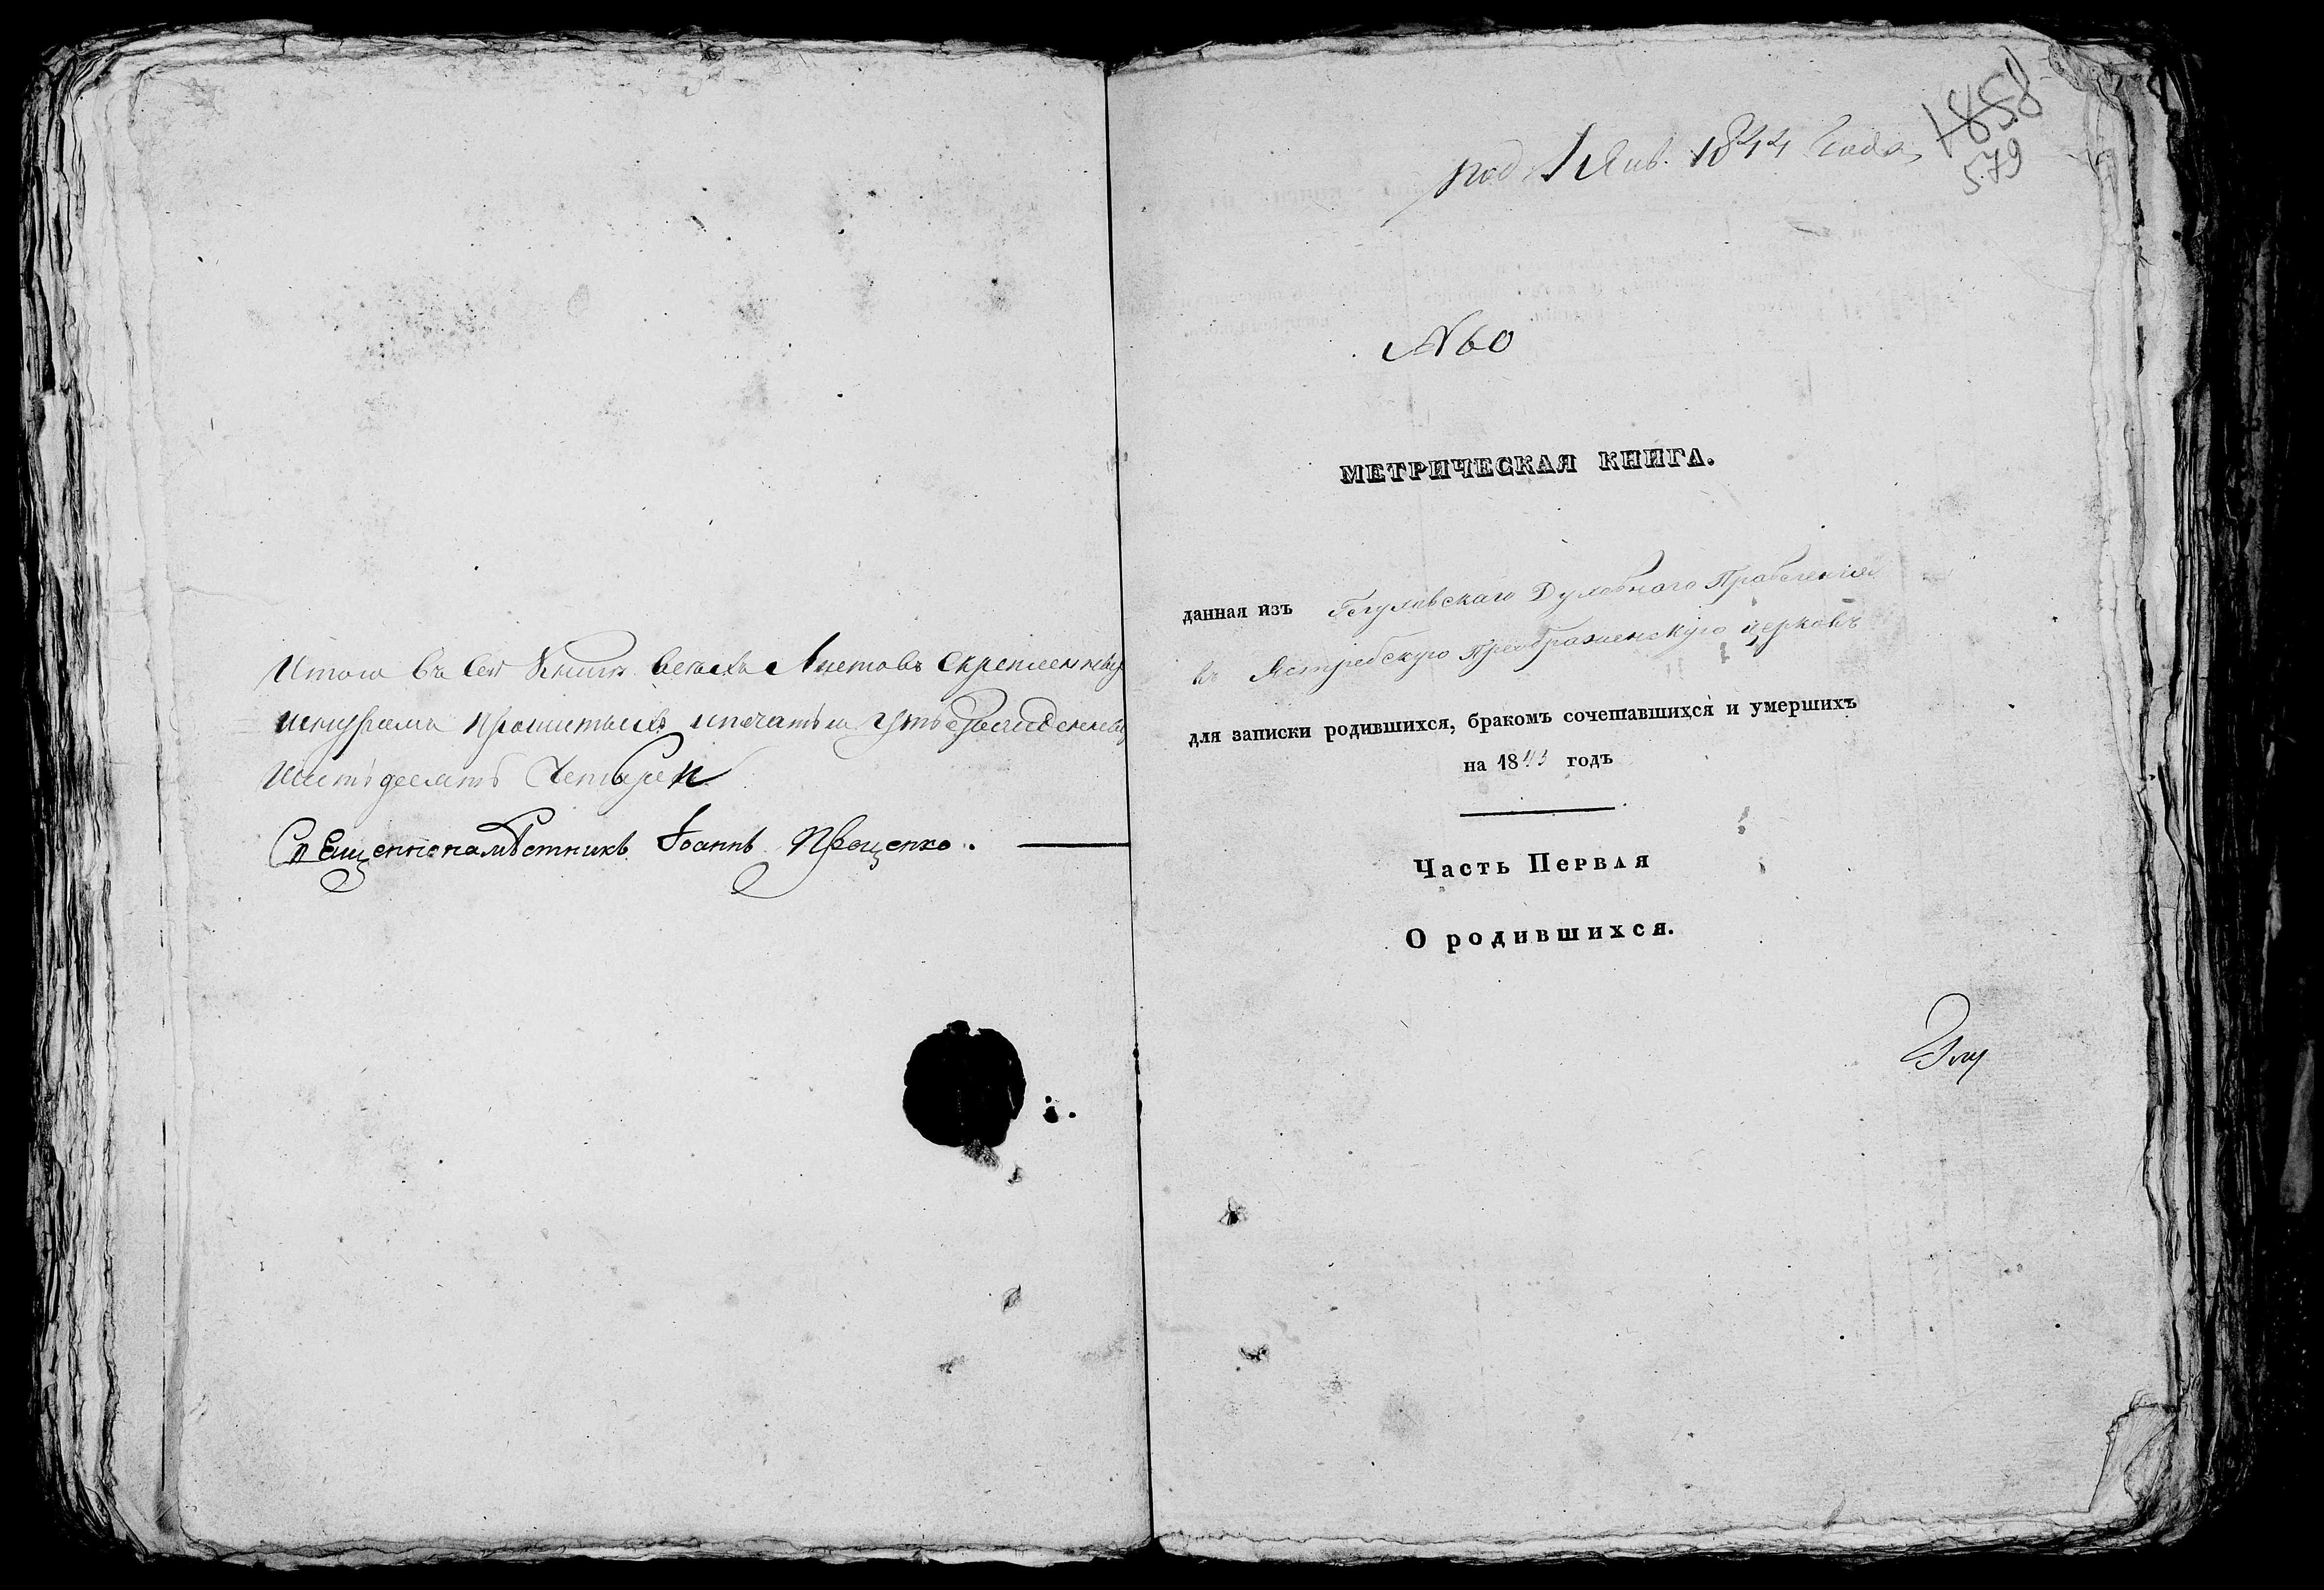 Итого въ сей книги всѣхъ листовъ скрепленныхъ
шнуромъ прошитыхъ ипечатью утвержденныхъ
шестьдесятъ четыре
Священнонамѣстникъ Іоаннъ Прощенко.
под. 1 Янв. 1844 года
1858
579
№ 60
МЕТРИЧЕСКАЯ КНИГА.
данная изъ Глуховскаго Духовнаго Правленія
въ Ястребскую Преображенскую церковь
для записки родившихся, бракомъ сочетавшихся и умершихъ
на 1843 годъ
Часть Первая
О родившихся.